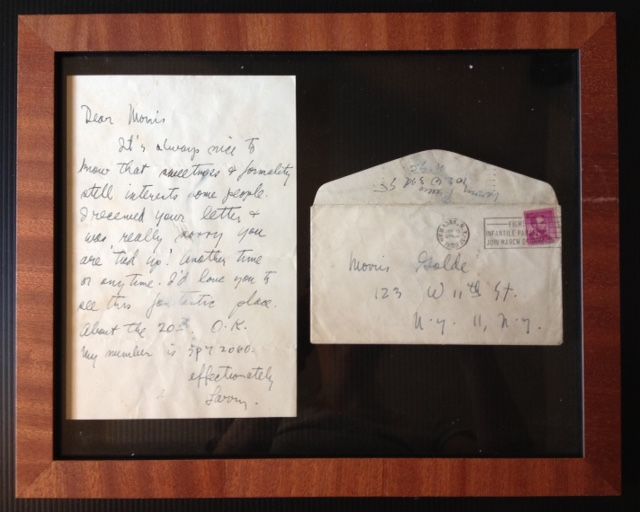 Dear Morris
It's always nice to
know that sweetness & formality
still interests some people.
I received your letter &
was really sorry you
are tied up! another time
or any time. I'd love you to
see this fantastic place.
About the 20th. O.K.
My number is 597 2060.
affectionately
Larry.
FIGHT
INFANTILE PA
JOIN MARCH O
Morris Golde
123 W 11th St.
N.Y. 11, N.Y.